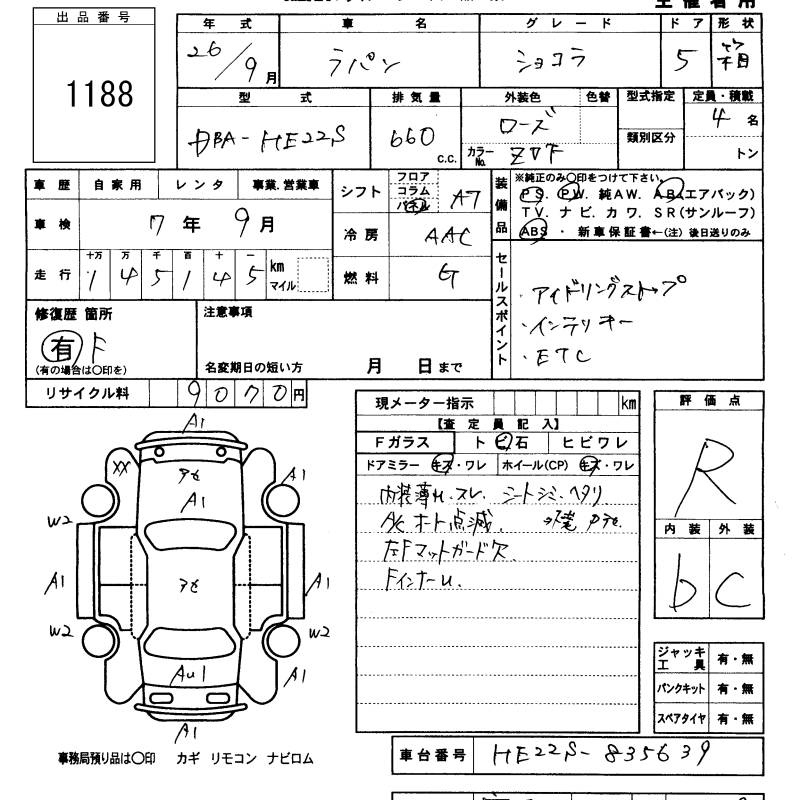 出品番号
1188
年式 車名 グレード ドア 形状
26/9月 ラパン ショコラ 5 箱
型式 排気量 外装色 色替 型式指定 定員・積載
DBA-HE22S 660 c.c. ローズ 4名
カラーNo. ZVF 類別区分 トン
車歴 自家用 レンタ 事業.営業車
車検 7年 9月
走行 十万 万 千 百 十 一
1 4 5 1 4 5 km
マイル
シフト フロア コラム パネル A7
冷房 AAC
燃料 G
装備品 ※純正のみ〇印をつけて下さい。
PS. PW. 純AW. AB(エアバック)
TV. ナビ. カワ. SR(サンルーフ)
ABS ・ 新車保証書←(注)後日送りのみ
セールスポイント
・アイドリングストップ
・インテリキー
・ETC
修復歴 箇所
有 F
(有の場合は〇印を)
注意事項
名変期日の短い方 月 日まで
リサイクル料 9070円
現メーター指示 km
【査定員記入】
Fガラス トビ石 ヒビワレ
ドアミラー キズ・ワレ ホイール(CP) キズ・ワレ
内装薄H.スレ. シートシミ.ヘタリ
A/Cオート点滅.
左Fマットガード欠.
FインナーU.
評価点
R
内装 外装
b C
ジャッキ工具 有・無
パンクキット 有・無
スペアタイヤ 有・無
A1
XX アセ A1
A1
W2 W2
A1 アセ A1
W2 W2
AU1 A1
A1
事務局預り品は〇印 カギ リモコン ナビロム
車台番号 HE22S-835639